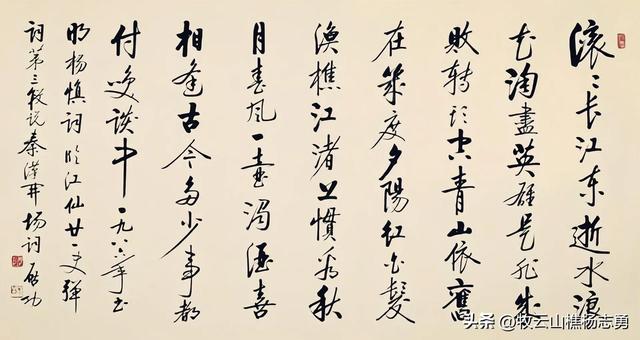 滚〻长江东逝水浪
花淘盡英雄是非成
敗转头空青山依舊
在幾度夕陽红白髮
渔樵江渚上慣看秋
月春风一壶濁酒喜
相逢古今多少事都
付笑談中 一九八六年书
明杨慎词临江仙廿一史弹
词第三段说秦漢开场词 启功
头条 @牧云山樵杨志勇